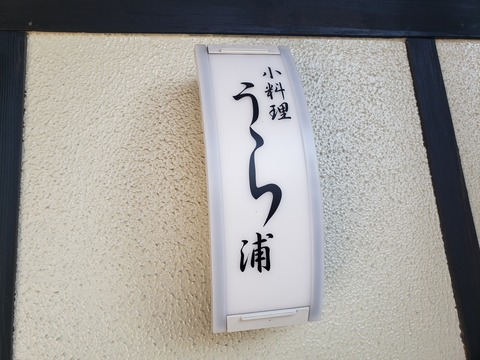 小料理
うら浦